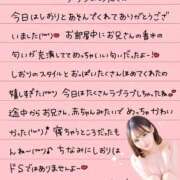 今日はしおりとあそんでくれてありがとうござ
いました(^o^)お部屋中にお兄さんの香水の
匂いが充満しててめっちゃいい匂いだったよー!
しおりのスタイルとおっぱいたくさんほめてくれたの
嬉しすぎた(^o^)今日はたくさんラブラブしちゃったね。
途中からお兄さん、赤ちゃんみたいでめっちゃかわい
かった(^o^)寝ちゃうところだったも
んねー(^o^)ちなみにしおりは
ドSではありませんよー